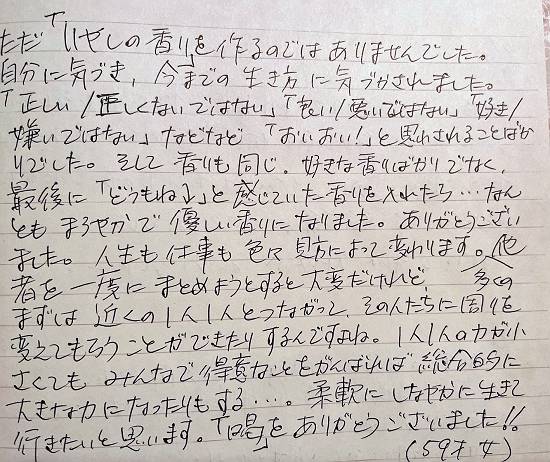 ただ「いやしの香り」を作るのではありませんでした。
自分に気づき、今までの生き方に気づかされました。
「正しい/正しくないではない」「良い/悪いではない」「好き/
嫌いではない」などなど 「おいおい!」と思わされることばか
りでした。そして香りも同じ。好きな香りばかりでなく、
最後に「どうもね↓」と感じていた香りを入れたら…なん
ともまろやかで優しい香りになりました。ありがとうござい
ました。人生も仕事も色々見方によって変わります。他
者を一度にまとめようとすると大変だけれど、 多くの
まずは近くの1人1人とつながって、その人たちに周りを
変えてもらうことができたりするんですよね。1人1人の力が小
さくてもみんなで得意なことをがんばれば総合的に
大きな力になったりもする…。柔軟にしなやかに生きて
行きたいと思います。「喝」をありがとうございました!!
(59才 女)